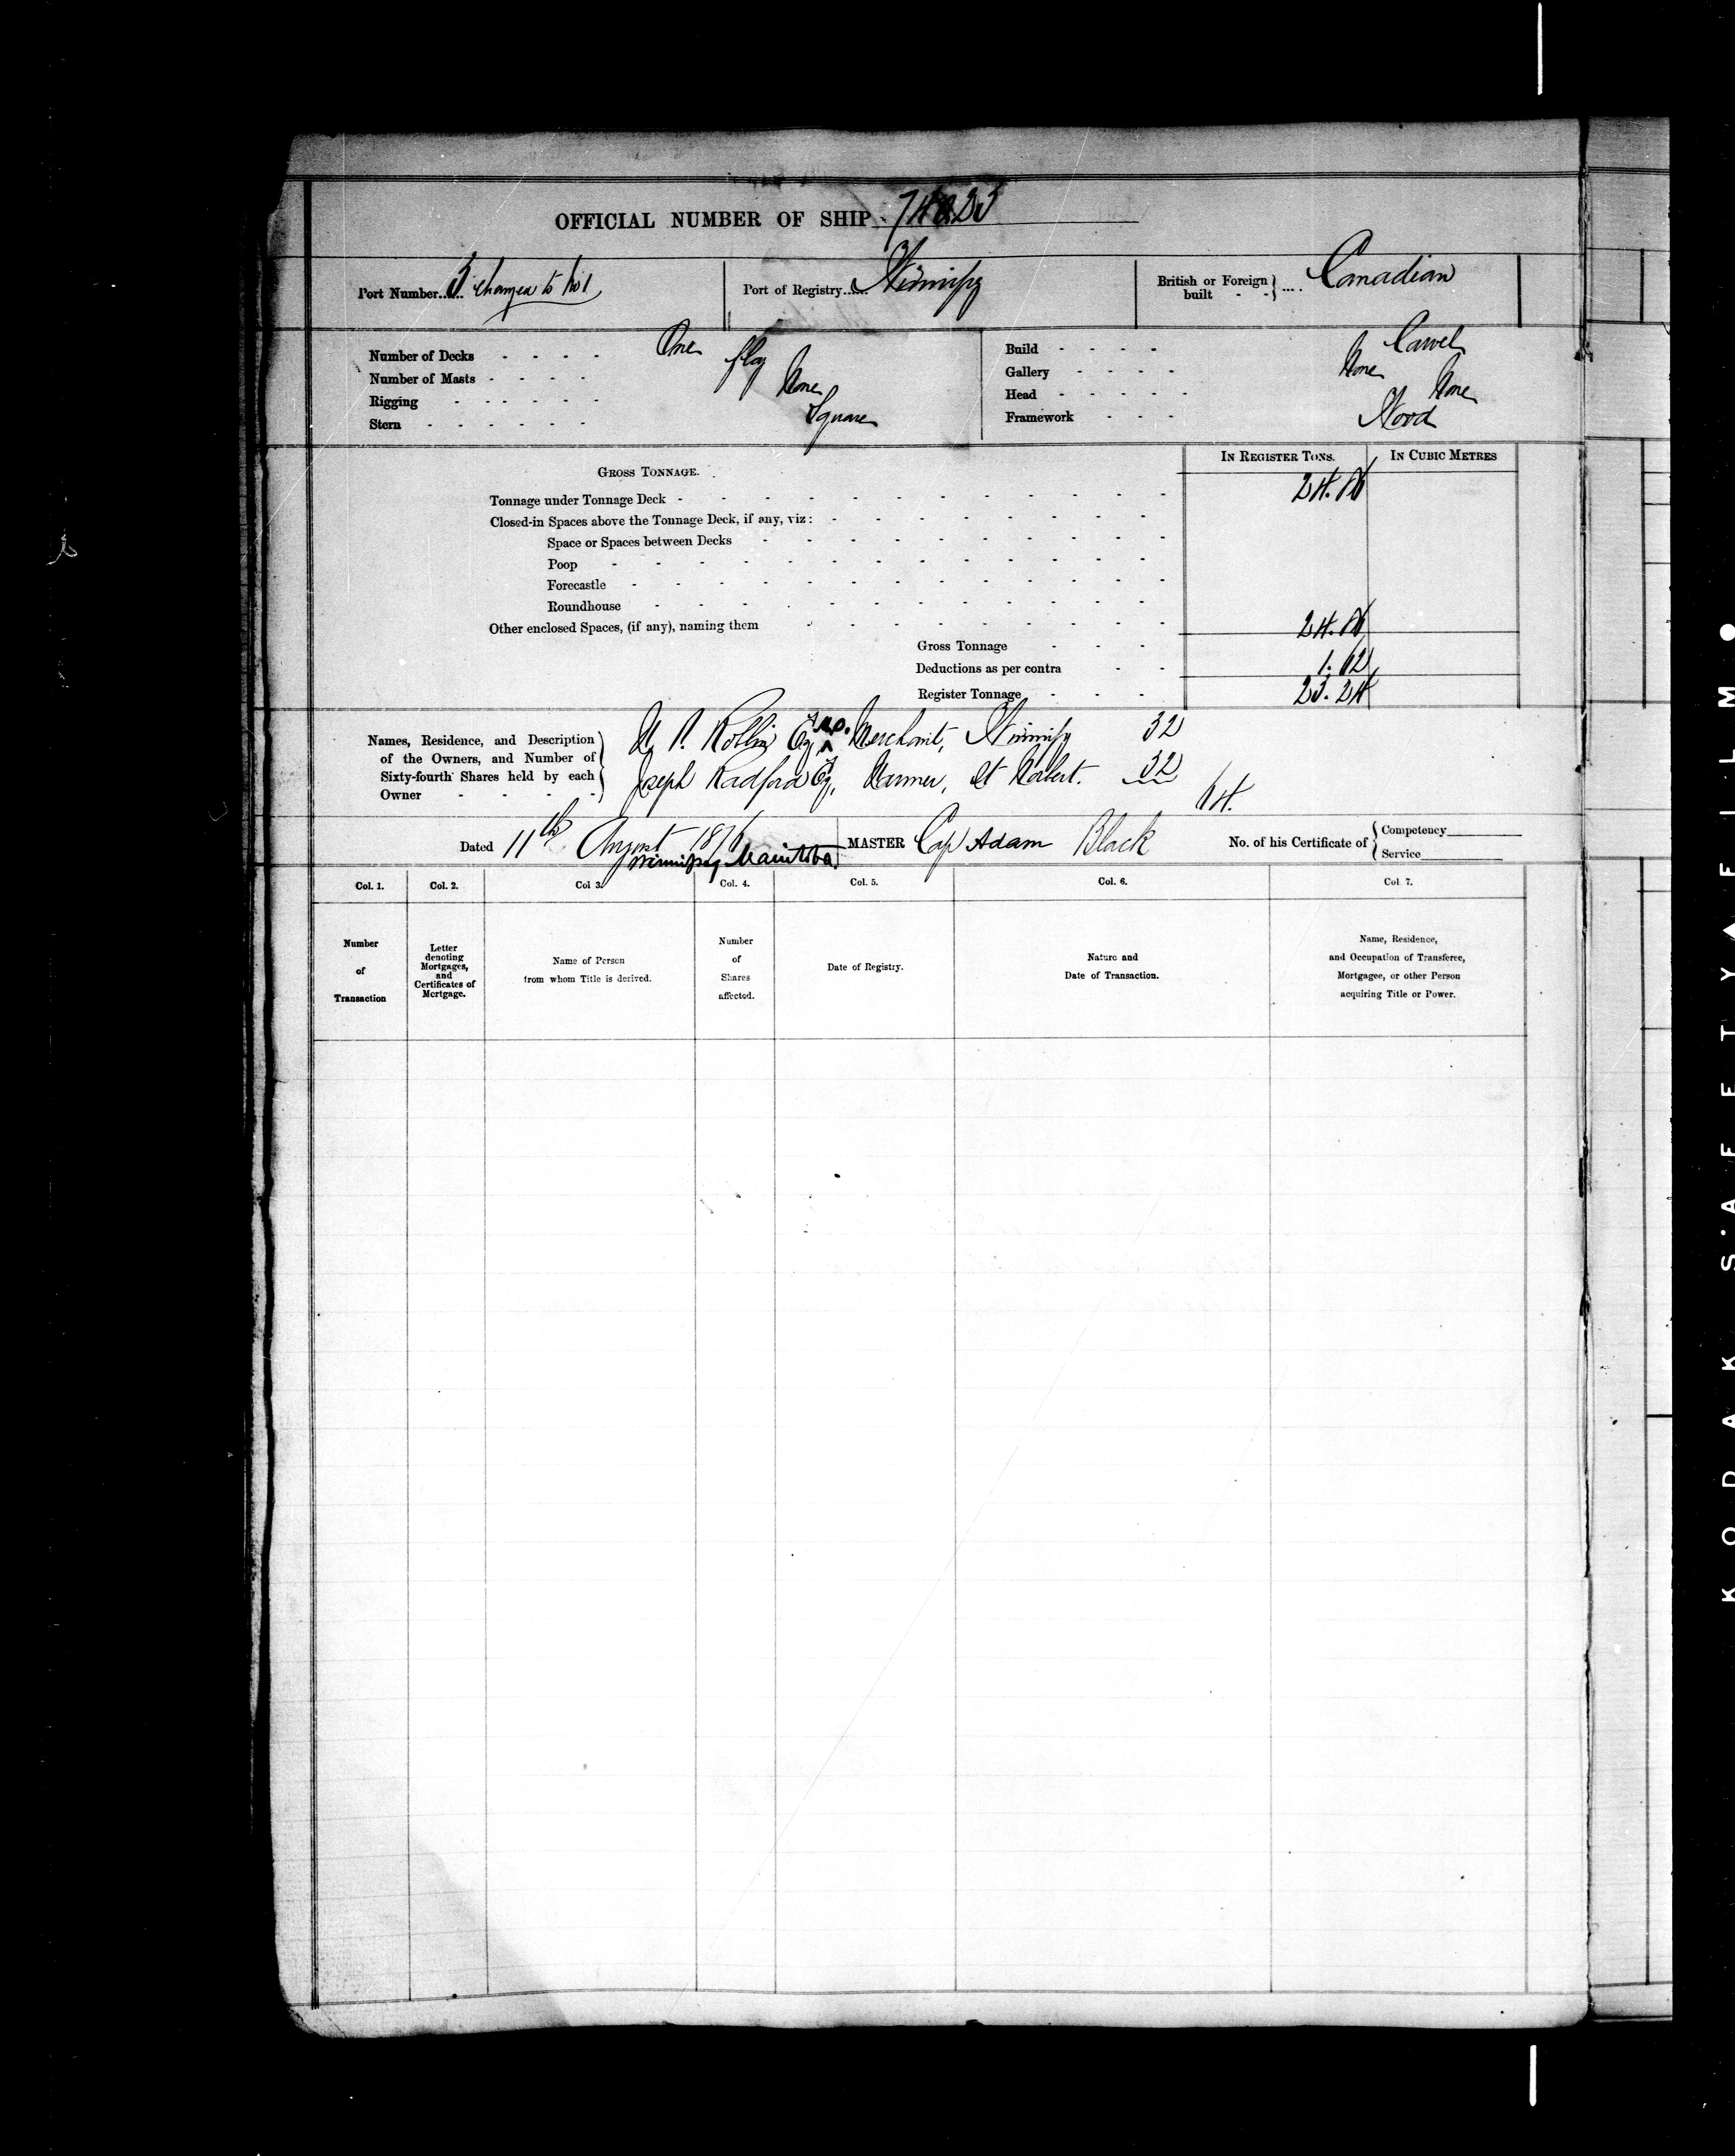 OFFICIAL NUMBER OF SHIP
Port Number...... 3 changed to No 1
Port of Registry...... Winnipeg
British or Foreign built - - .... Canadian
Number of Decks - - - - One
Number of Masts - - - - flag
Rigging - - - - - - None
Stern - - - - - - Square
Build - - - - Carvel
Gallery - - - - None
Head - - - - - None
Framework - - - Wood
IN REGISTER TONS.
IN CUBIC METRES
GROSS TONNAGE.
Tonnage under Tonnage Deck - 24.86
Closed-in Spaces above the Tonnage Deck, if any, viz:
Space or Spaces between Decks
Poop
Forecastle
Roundhouse
Other enclosed Spaces, (if any), naming them
Gross Tonnage - - - 24.86
Deductions as per contra - - 1.62
Register Tonnage - - - 23.24
Names, Residence, and Description
of the Owners, and Number of
Sixty-fourth Shares held by each
Owner - - - -
Esq, M.D. Merchant, Winnipeg 32
Joseph Radford Esq, Farmer, St Norbert. 32
64.
Dated 11th August 1876
Winnipeg Manitoba.
MASTER Cap Adam Black
No. of his Certificate of
Competency
Service
Col. 1.
Col. 2.
Col 3.
Col. 4.
Col. 5.
Col. 6.
Col 7.
Number
of
Transaction
Letter
denoting
Mortgages,
and
Certificates of
Mortgage.
Name of Person
from whom Title is derived.
Number
of
Shares
affected.
Date of Registry.
Nature and
Date of Transaction.
Name, Residence,
and Occupation of Transferee,
Mortgagee, or other Person
acquiring Title or Power.
KODAK SAFETY FILM